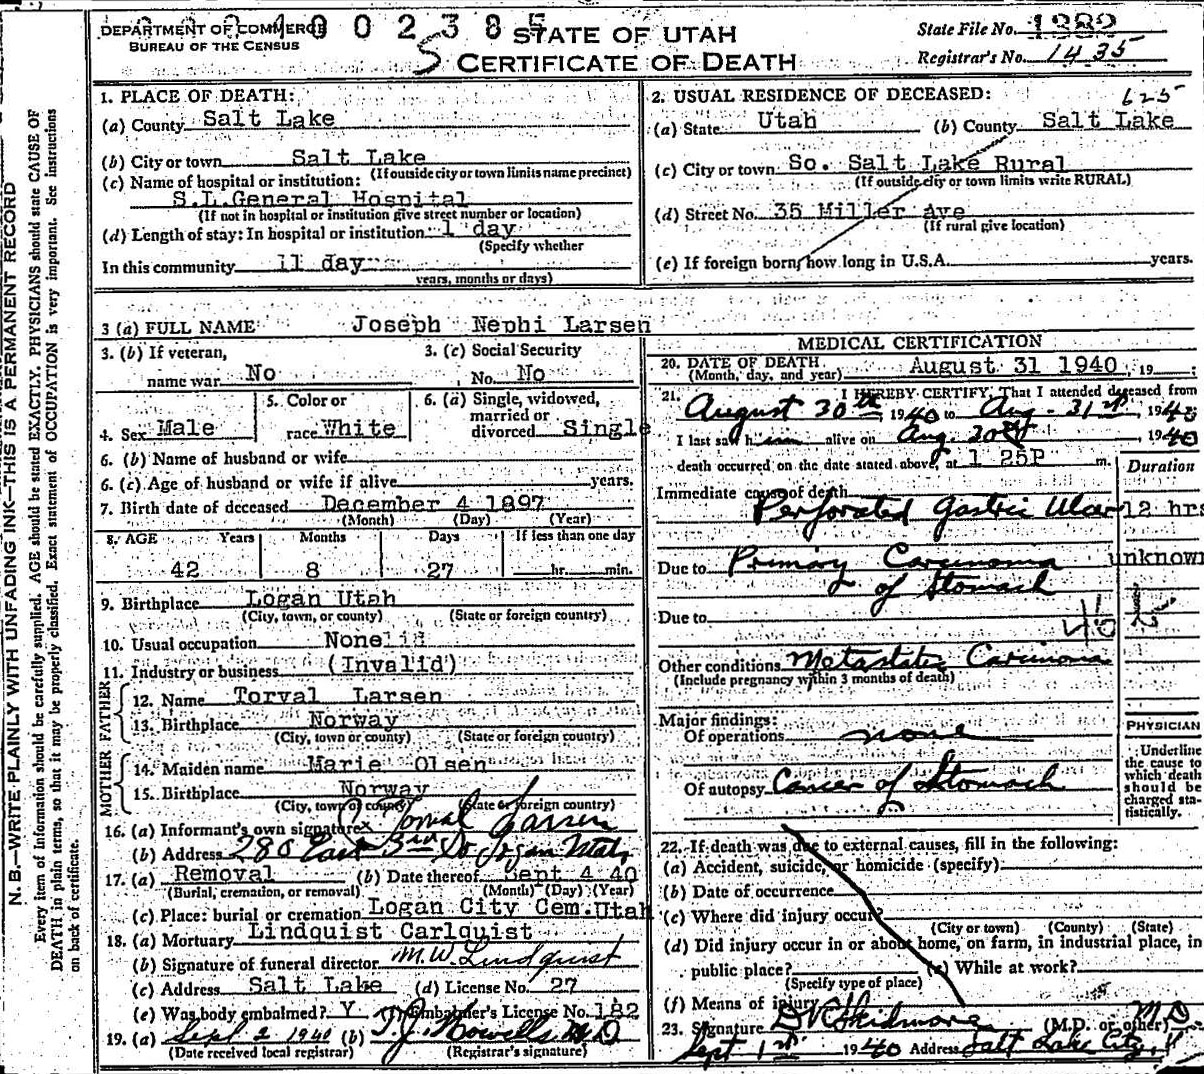 DEPARTMENT OF COMMERCE
BUREAU OF THE CENSUS
0 0 2 3 8 5
S
STATE OF UTAH
CERTIFICATE OF DEATH
State File No. 1382
Registrar's No. 1435
N. B.—WRITE PLAINLY WITH UNFADING INK—THIS IS A PERMANENT RECORD
Every item of information should be carefully supplied. AGE should be stated EXACTLY. PHYSICIANS should state CAUSE OF
DEATH in plain terms, so that it may be properly classified. Exact statement of OCCUPATION is very important. See instructions
on back of certificate.
1. PLACE OF DEATH:
(a) County Salt Lake
(b) City or town Salt Lake
(If outside city or town limits name precinct)
(c) Name of hospital or institution:
S.L.General Hospital
(If not in hospital or institution give street number or location)
(d) Length of stay: In hospital or institution 1 day
(Specify whether
In this community 11 day
years, months or days)
2. USUAL RESIDENCE OF DECEASED: 625
(a) State Utah (b) County Salt Lake
(c) City or town So. Salt Lake Rural
(If outside city or town limits write RURAL)
(d) Street No. 35 Miller Ave
(If rural give location)
(e) If foreign born, how long in U.S.A. years.
3 (a) FULL NAME Joseph Nephi Larsen
3. (b) If veteran,
name war No
3. (c) Social Security
No. No
4. Sex Male
5. Color or
race White
6. (a) Single, widowed,
married or
divorced Single
6. (b) Name of husband or wife
6. (c) Age of husband or wife if alive years.
7. Birth date of deceased December 4 1897
(Month) (Day) (Year)
8. AGE Years Months Days If less than one day
42 8 27 hr. min.
9. Birthplace Logan Utah
(City, town, or county) (State or foreign country)
10. Usual occupation None
11. Industry or business (Invalid)
FATHER
12. Name Torval Larsen
13. Birthplace Norway
(City, town or county) (State or foreign country)
MOTHER
14. Maiden name Marie Olsen
15. Birthplace Norway
(City, town or county) (State or foreign country)
16. (a) Informant's own signature x Torval Larsen
(b) Address 280 East 3rd So Logan Utah
17. (a) Removal (b) Date thereof Sept 4 40
(Burial, cremation, or removal) (Month) (Day) (Year)
(c) Place: burial or cremation Logan City Cem. Utah
18. (a) Mortuary Lindquist Carlquist
(b) Signature of funeral director M.W. Lindquist
(c) Address Salt Lake (d) License No. 27
(e) Was body embalmed? Y Embalmer's License No. 182
19. (a) Sept 2 1940 (b) T.J. Howells M.D
(Date received local registrar) (Registrar's signature)
MEDICAL CERTIFICATION
20. DATE OF DEATH August 31 1940, 19 ;
(Month, day, and year)
21. I HEREBY CERTIFY, That I attended deceased from
August 30th 1940 to Aug. 31st, 1940
I last saw him alive on Aug. 30th, 1940
death occurred on the date stated above, at 1 25P m.
Duration
Immediate cause of death
Perforated Gastric Ulcer 12 hrs
Due to Primary Carcinoma unknown
of Stomach
Due to
Other conditions Metastatic Carcinoma
(Include pregnancy within 3 months of death)
Major findings:
Of operations none
Of autopsy Cancer of Stomach
PHYSICIAN
Underline
the cause to
which death
should be
charged sta-
tistically.
22. If death was due to external causes, fill in the following:
(a) Accident, suicide, or homicide (specify)
(b) Date of occurrence
(c) Where did injury occur?
(City or town) (County) (State)
(d) Did injury occur in or about home, on farm, in industrial place, in
public place? (e) While at work?
(Specify type of place)
(f) Means of injury
23. Signature D V Skidmore (M.D. or other) M.D
Sept 1st 1940 Address Salt Lake City, U